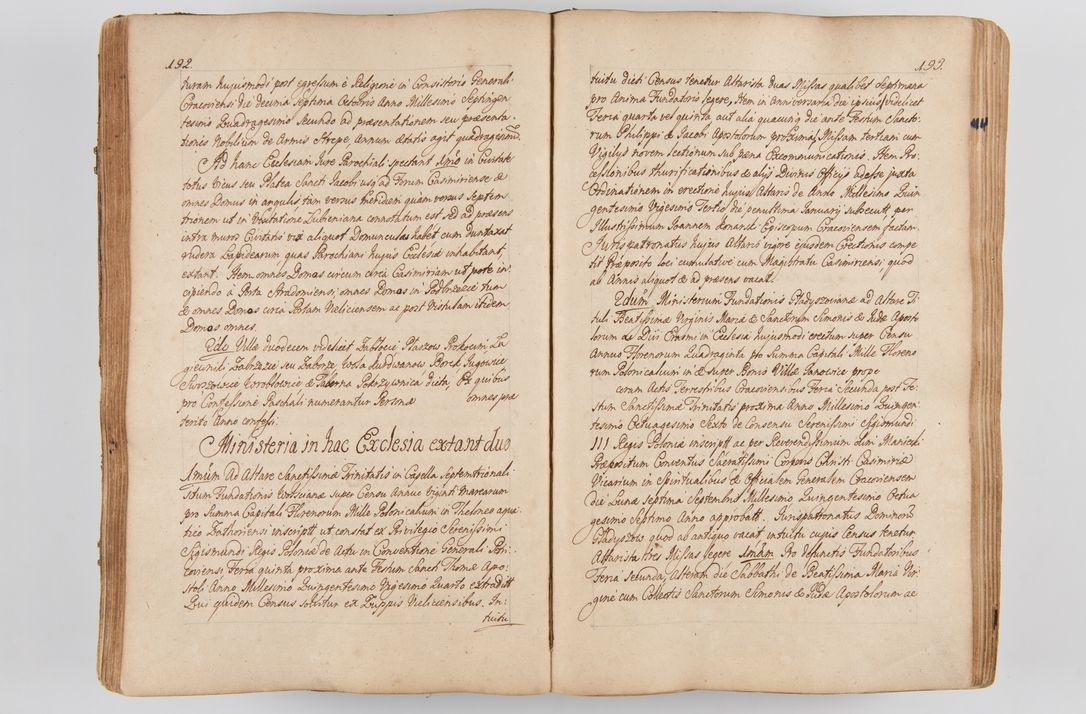 192.
turam hujusmodi post egressum è Religione in Consistorio Generali
Cracoviensi die decima Septima Octobris Anno Millesimo Septingen
tesimo Quadragesimo Secundo ad præsentationem seu præsenta-
tiones Nobilium de Armis Strepe, annum ætatis agit quadragesimũ.
Ad hanc Ecclesiam Jure Parochiali spectant 1mo in Civitate
totus Vicus seu Platea Sancti Jacobi usq; ad Forum Casimiriense &
omnes Domus in angulis tam versus meridiem quam versus Septem
trionem ut in Visitatione Lubieniana connotatum est sed ad præsens
intra muros Civitatis vix aliquot Domunculas habet cum duntaxat
rudera Lapidearum quas Parochiani hujus Ecclesiæ inhabitant,
extant. Item omnes Domos circum circa Casimiriam ut pote in-
cipiendo à Porta Stradomiensi, omnes Domos in Podbrzezie tum
& omnes Domos circa Portam Vieliciensem ac post Vistulam itidem
Domos omnes.
2do Villæ duodecem videlicet Zabłocie Płaszow Prokocim, Ła
giewniki Zabrzezie seu Zaborze Wola Kurdwanow Borek Jugowice
Swoszowice Wroblowice & Taberna Podrzywnica dicta, Ex quibus
pro Confessione Paschali numerantur Personæ omnes præ
terito Anno confessi.
Ministeria in hac Ecclesia extant duo
1mum Ad Altare Sanctissimæ Trinitatis in Capella Septemtrionali
situm Fundationis super Censu Annuo Viginti Marcarum
pro Summa Capitali Florenorum Mille Polonicalium in Theloneo aqua
tico Zathoriensi inscriptt ut constat ex Privilegio Serenissimi
Sigismundi Regis Poloniæ de Actu in Conventione Generali Petri
coviensi Feria quinta proxima ante Festum Sancti Thomæ Apo-
stoli Anno Millesimo Quingentesimo Vigesimo Quarto extraditt
Qui quidem Census solvitur ex Zuppis Vieliciensibus. In-
tuitu
193.
tuitu dicti Census tenetur Altarista duas Missas qualibet Septimana
pro Anima Fundatoris legere, Item in Anniversaria die ipsius videlicet
Feria quarta vel quinta aut alia quacunq; die ante Festum Sancto-
rum Philippi & Jacobi Apostolorum proxima, Missam tertiam cum
Vigilijs novem Lectionum sub pæna Excommunicationis. Item Pro-
cessionibus thurificationibus & alijs Divinis Officijs adesse juxta
Ordinationem in erectione hujus Altaris de Anno Millesimo Quin
gentesimo Vigesimo Tertio die penultima Januarij subsecutt per
Illustrissimum Joannem Konarski Episcopum Cracoviensem factam.
Jurispatronatus hujus Altaris vigore ejusdem Erectionis compe
tit Præposito loci cumulative cum Magistratu Casimiriensi, quod
ab Annis aliquot & ad præsens vacat.
2dum Ministerium Fundationis Gładyszoviana ad Altare Ti
tuli Beatissimæ Virginis Mariæ & Sanctorum Simonis & Judæ Aposto
lorum ac Divi Erasmi in Ecclesia hujusmodi erectum super Censu
Annuo Florenorum Quadraginta pro Summa Capitali Mille Floreno
rum Polonicalium in & super Bonis Villæ Janowice prope
coram Actis Terrestribus Cracoviensibus Feria Secunda post Fe-
stum Sanctissimæ Trinitatis proxima Anno Millesimo Quingen
tesimo Octuagesimo Sexto de Consensu Serenissimi Sigismundi
III Regis Poloniæ inscriptt ac per Reverendissimum olim
Præpositum Conventus Sacratissimi Corporis Christi Casimiriæ
Vicarium in Spiritualibus & Officialem Generalem Cracoviensem
die Lunæ Septima Septembris Millesimo Quingentesimo Octua
gesimo Septimo Anno approbatt. Jurispatronatus Dominorũ
Gładyszow quod ab antiquo vacat intuitu cujus Census tenetur
Altarista tres Missas legere 1mam Pro defunctis Fundatoribus
Feria Secunda, Alteram die Sabbathi de Beatissima Maria Vir-
gine cum Collectis Sanctorum Simonis & Judæ Apostolorum ac